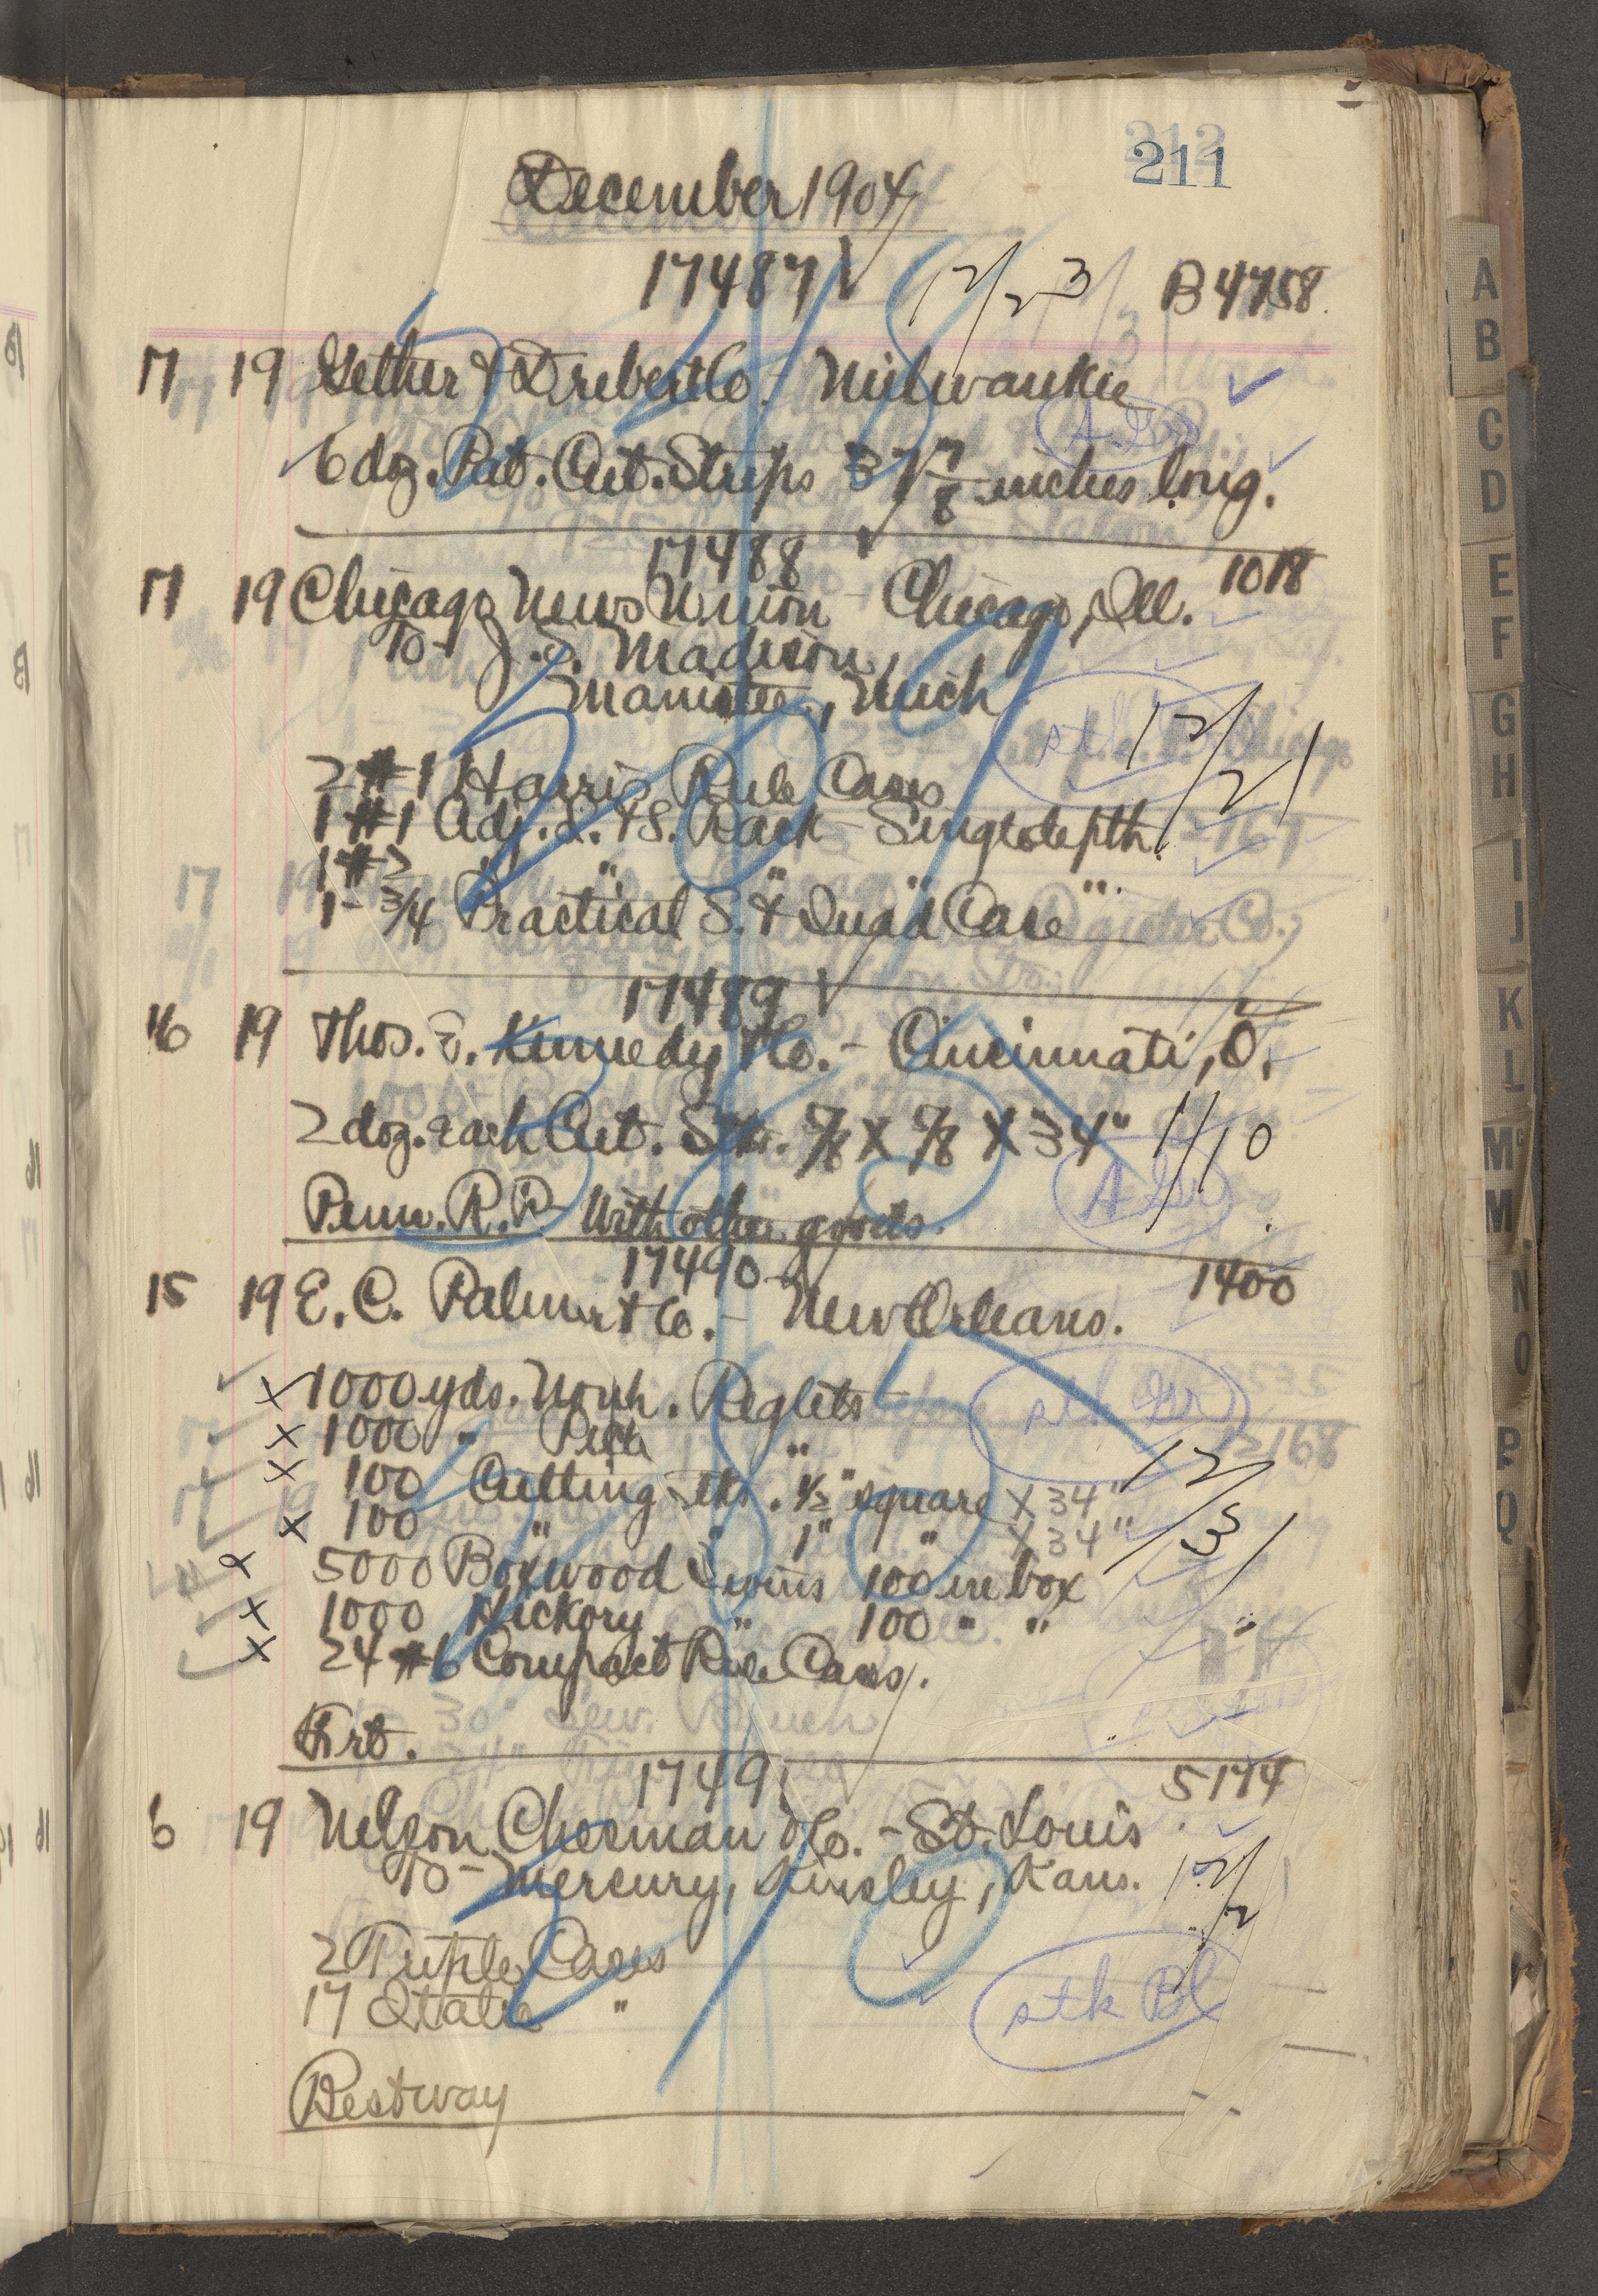 211
December 1904
17487 12/23 B 4758
17 19 Gether & Drebert Co. - Milwaukee
A. Gr
6 doz. Pat. Cut. Strips 37 7/8 inches long.
17488
17 19 Chicago News Union - Chicago, Ill. 1018
To - J. S. Madison,
Manistee, Mich
12/21
2 #1 Harris Rule Cases
1 #1 Adj. L. & S. Rack - Single depth.
1 #2 " " " " "
1 - 3/4 Practical S. & Quad Case
17489
16 19 Thos. E. Kennedy & Co. - Cincinnati, O.
2 doz. each Cut. Stks. 7/8 X 7/8 X 34" 1/10
A Gr
Penn. R. R. With other goods.
17490 1400
15 19 E. C. Palmer & Co. - New Orleans.
stk Gr
X 1000 yds. Nonp. Reglets
X 1000 " Pica "
X 100 Cutting stks. 1/2" square X 34" 12/31
X 100 " " 1" " X 34"
X 5000 Boxwood Quoins 100 in box
X 1000 Hickory " 100 " "
X 24 #6 Compact Rule Cases.
Frt.
17491 5174
6 19 Nelson Chesman & Co. - St. Louis
To - Mercury, Kinsley, Kans. 12/2
2 Triple Cases
17 Italic "
stk Bl
Bestway